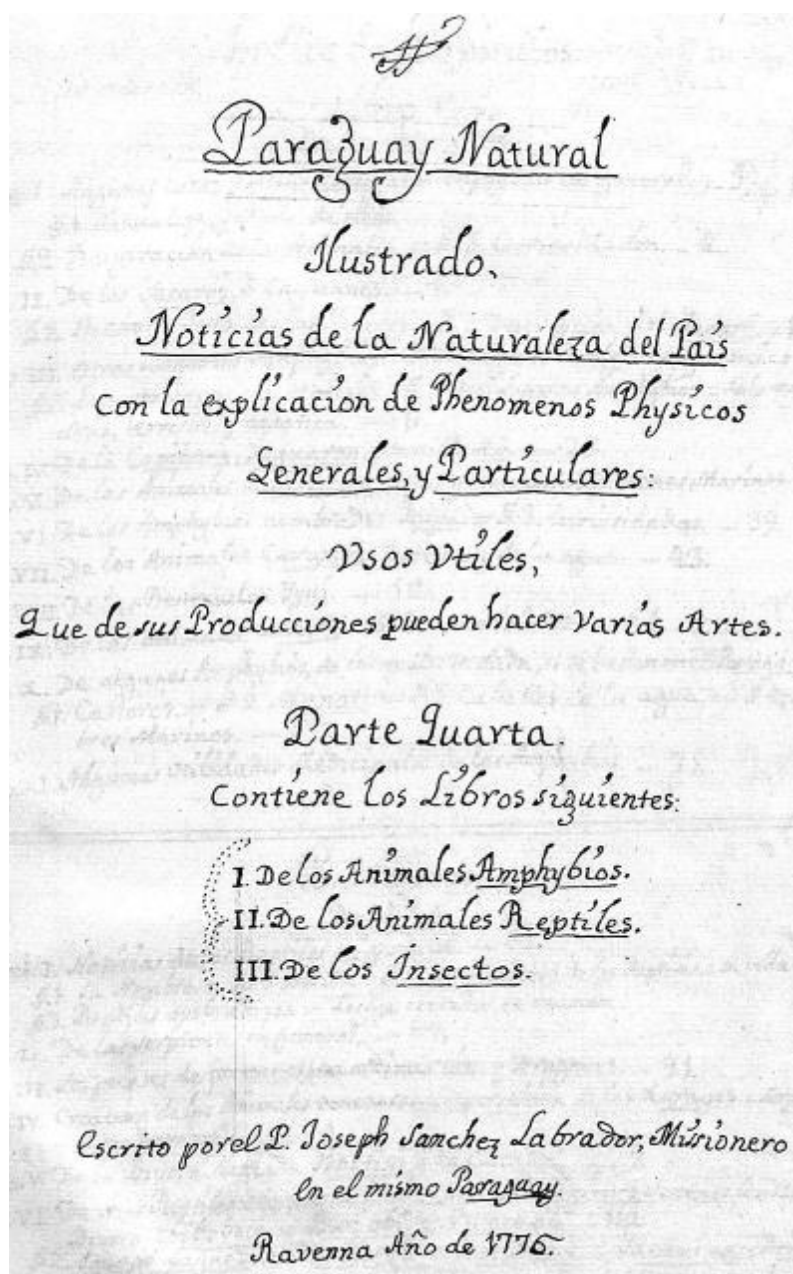 Paraguay Natural
Ilustrado.
Noticias de la Naturaleza del Pais
con la explicacion de Phenomenos Physicos
Generales, y Particulares:
Vsos Vtiles,
Que de sus Producciones pueden hacer varias Artes.
Parte Quarta
Contiene los Libros siguientes:
I. De los Animales Amphybios.
II. De los Animales Reptiles.
III. De los Insectos.
Escrito por el P. Joseph Sanchez Labrador, Misionero
en el mismo Paraguay.
Ravenna Año de 1776.